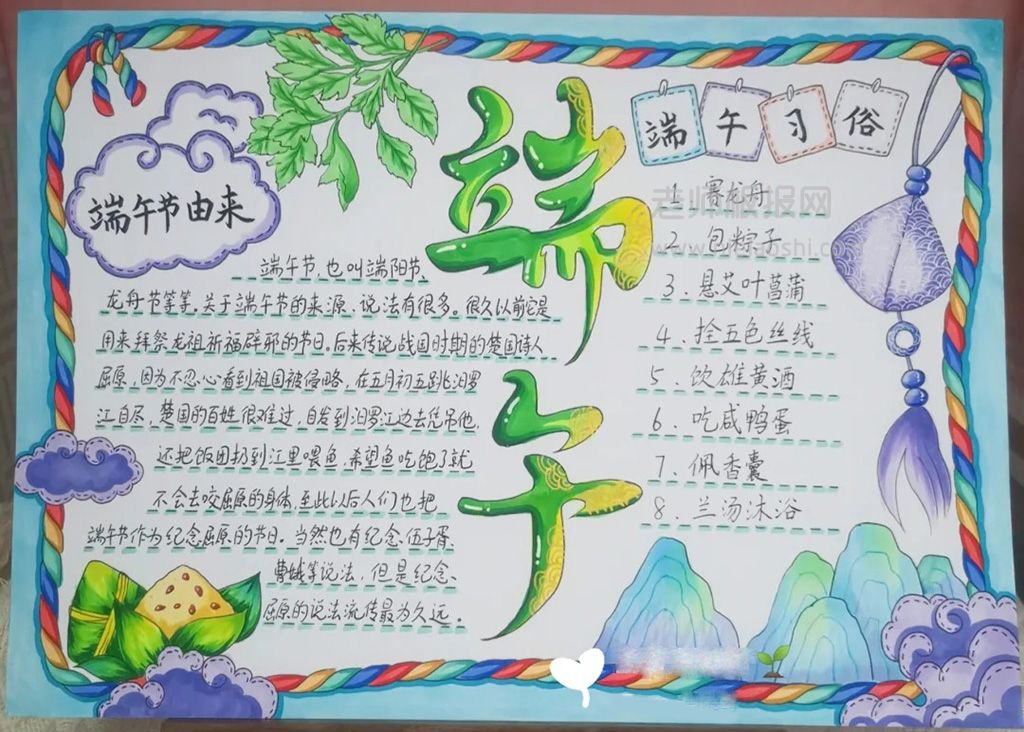 端午
端午节由来
端午节,也叫端阳节、
龙舟节等等。关于端午节的来源、说法有很多。很久以前它是
用来拜祭龙祖祈福辟邪的节日。后来传说战国时期的楚国诗人
屈原,因为不忍心看到祖国被侵略,在五月初五跳汨罗
江自尽,楚国的百姓很难过,自发到汨罗江边去凭吊他,
还把饭团扔到江里喂鱼,希望鱼吃饱了就
不会去咬屈原的身体,至此以后人们也把
端午节作为纪念屈原的节日。当然也有纪念、伍子胥、
曹娥等说法,但是纪念、
屈原的说法流传最为久远。
端午习俗
1、赛龙舟
2、包粽子
3、悬艾叶菖蒲
4、拴五色丝线
5、饮雄黄酒
6、吃咸鸭蛋
7、佩香囊
8、兰汤沐浴
老师板报网